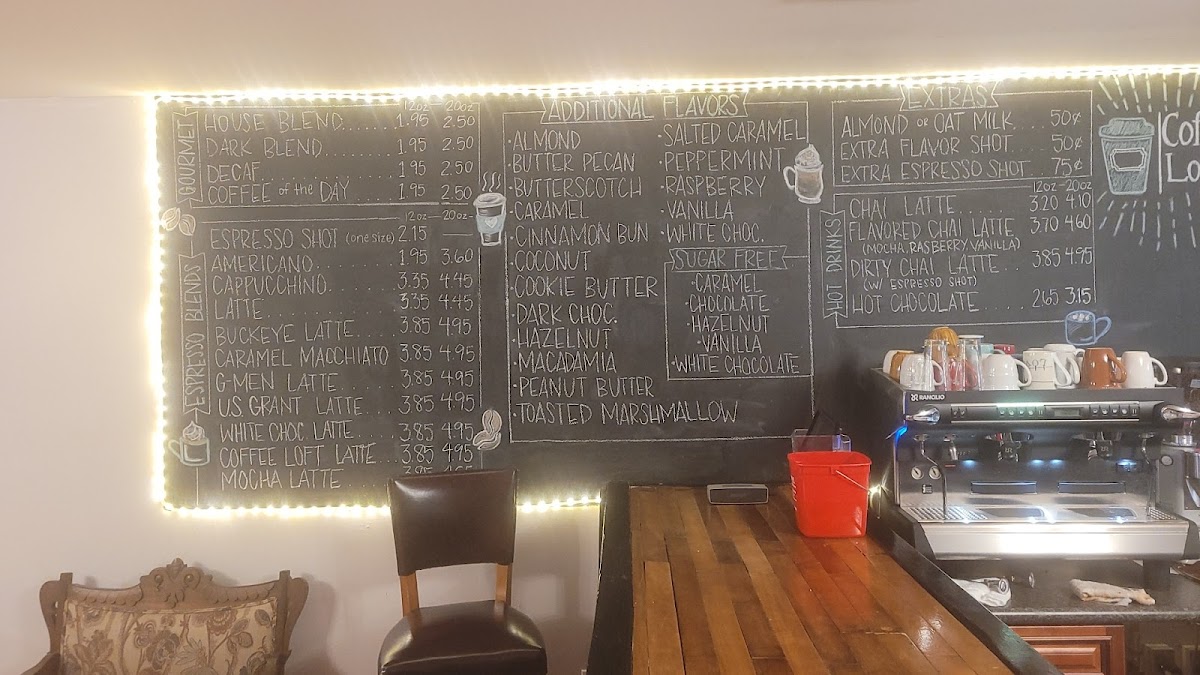 GOURMET
12oz 20oz
HOUSE BLEND....... 1.95 2.50
DARK BLEND........ 1.95 2.50
DECAF............. 1.95 2.50
COFFEE of the DAY 1.95 2.50
ESPRESSO BLENDS
12oz 20oz
ESPRESSO SHOT (one size) 2.15
AMERICANO......... 1.95 3.60
CAPPUCCINO........ 3.35 4.45
LATTE............. 3.35 4.45
BUCKEYE LATTE... 3.85 4.95
CARAMEL MACCHIATO 3.85 4.95
G-MEN LATTE.... 3.85 4.95
U.S. GRANT LATTE... 3.85 4.95
WHITE CHOC. LATTE.... 3.85 4.95
COFFEE LOFT LATTE... 3.85 4.95
MOCHA LATTE.....
ADDITIONAL FLAVORS
·ALMOND
·BUTTER PECAN
·BUTTERSCOTCH
·CARAMEL
·CINNAMON BUN
·COCONUT
·COOKIE BUTTER
·DARK CHOC.
·HAZELNUT
·MACADAMIA
·PEANUT BUTTER
·TOASTED MARSHMALLOW
·SALTED CARAMEL
·PEPPERMINT
·RASPBERRY
·VANILLA
·WHITE CHOC.
SUGAR FREE
·CARAMEL
·CHOCOLATE
·HAZELNUT
·VANILLA
·WHITE CHOCOLATE
EXTRAS
ALMOND OR OAT MILK... 50¢
EXTRA FLAVOR SHOT.... 50¢
EXTRA ESPRESSO SHOT 75¢
HOT DRINKS
12oz-20oz
CHAI LATTE....... 3.20 4.10
FLAVORED CHAI LATTE 3.70 4.60
(MOCHA, RASBERRY, VANILLA)
DIRTY CHAI LATTE... 3.85 4.95
(W/ ESPRESSO SHOT)
HOT CHOCOLATE..... 2.65 3.15
RANCILIO